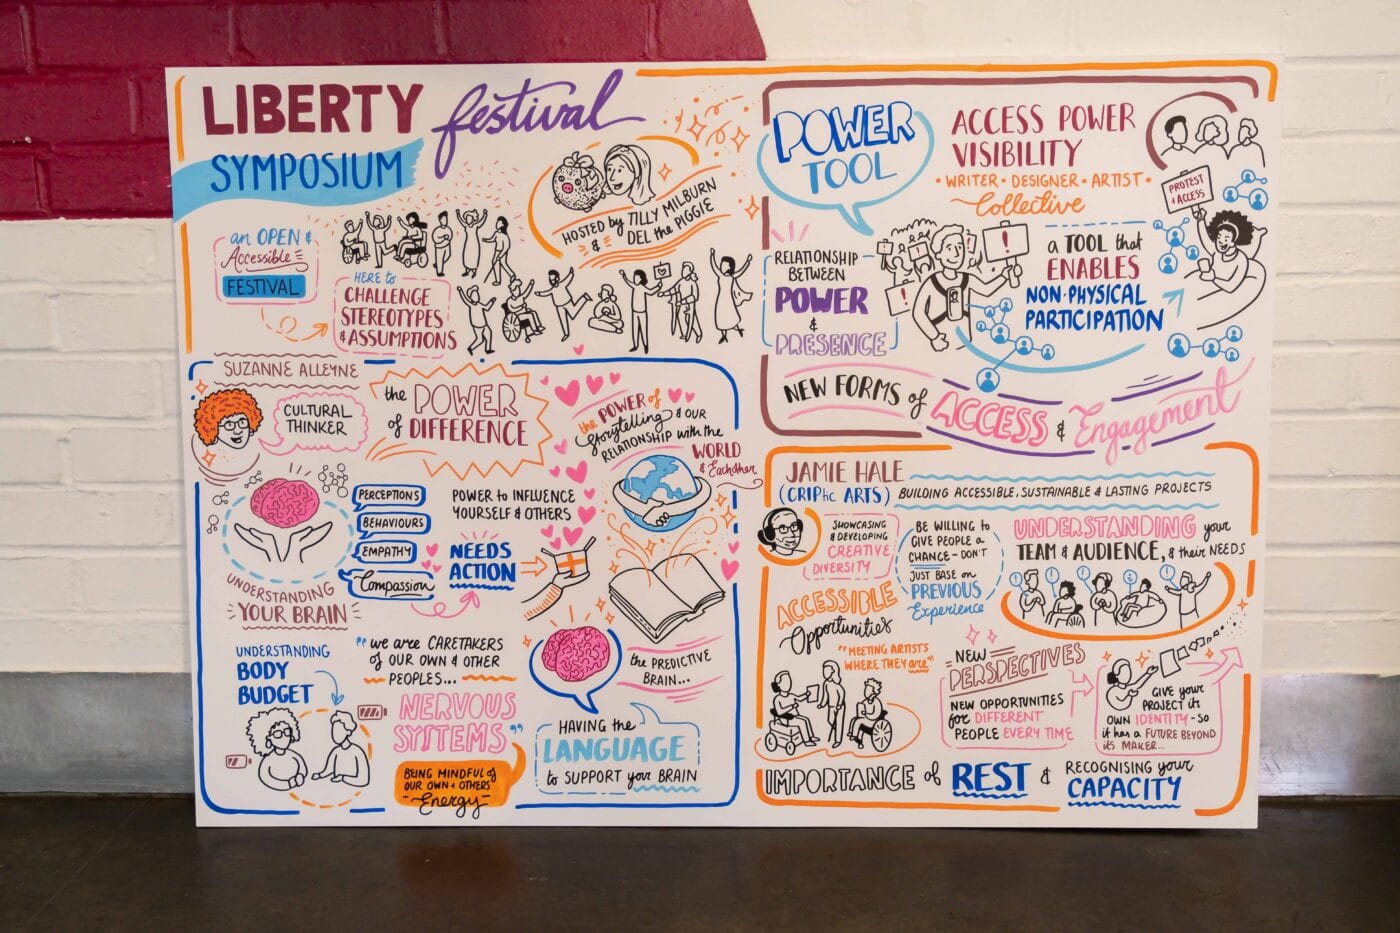 LIBERTY festival
SYMPOSIUM
HOSTED by TILLY MILBURN
& DEL the PIGGIE
an OPEN &
Accessible
FESTIVAL
HERE to
CHALLENGE
STEREOTYPES
& ASSUMPTIONS
SUZANNE ALLEYNE
CULTURAL
THINKER
the POWER
of DIFFERENCE
the POWER of
Storytelling & OUR
RELATIONSHIP with the
WORLD
& Eachother
PERCEPTIONS
BEHAVIOURS
EMPATHY
Compassion
POWER to INFLUENCE
YOURSELF & OTHERS
NEEDS
ACTION
UNDERSTANDING
YOUR BRAIN
UNDERSTANDING
BODY
BUDGET
"we are CARETAKERS
of OUR OWN & OTHER
PEOPLES...
NERVOUS
SYSTEMS"
BEING MINDFUL of
OUR OWN + OTHERS'
- Energy -
the PREDICTIVE
BRAIN...
HAVING the
LANGUAGE
to SUPPORT your BRAIN
POWER
TOOL
ACCESS POWER
VISIBILITY
• WRITER • DESIGNER • ARTIST •
Collective
PROTEST
+ ACCESS
RELATIONSHIP
BETWEEN
POWER
&
PRESENCE
!
!
!
a TOOL that
ENABLES
NON-PHYSICAL
PARTICIPATION
NEW FORMS of ACCESS & Engagement
JAMIE HALE
(CRIPtic ARTS) BUILDING ACCESSIBLE, SUSTAINABLE & LASTING PROJECTS
SHOWCASING
& DEVELOPING
CREATIVE
DIVERSITY
BE WILLING to
GIVE PEOPLE a
CHANCE - DON'T
JUST BASE on
PREVIOUS
Experience
UNDERSTANDING your
TEAM & AUDIENCE, & their NEEDS
ACCESSIBLE
Opportunities
"MEETING ARTISTS
WHERE THEY are"
NEW
PERSPECTIVES
NEW OPPORTUNITIES
for DIFFERENT
PEOPLE EVERY TIME
GIVE your
PROJECT its
OWN IDENTITY - SO
it has a FUTURE BEYOND
its MAKER...
IMPORTANCE of REST & RECOGNISING your
CAPACITY